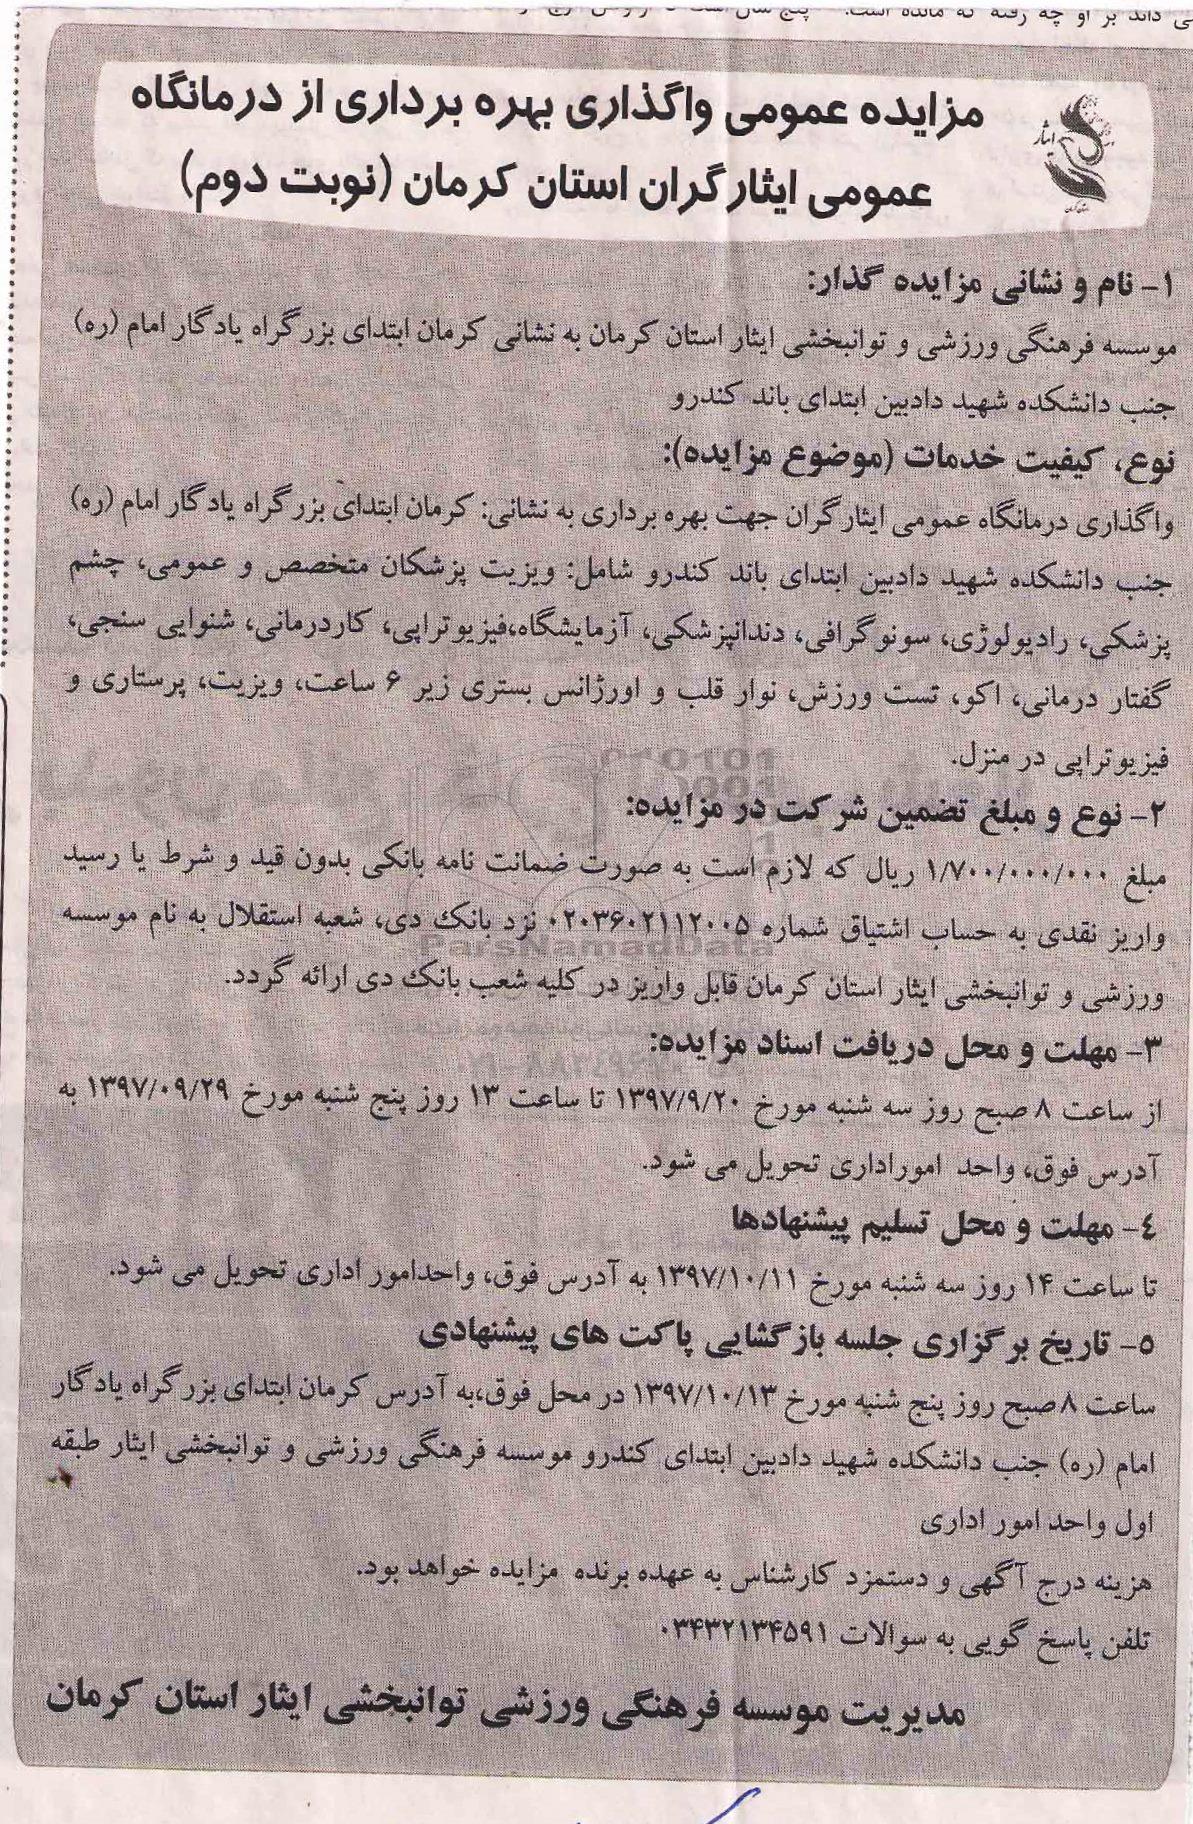 مزایده عمومی واگذاری بهره برداری از درمانگاه
عمومی ایثارگران استان کرمان (نوبت دوم)
ایثار
۱- نام و نشانی مزایده گذار:
موسسه فرهنگی ورزشی و توانبخشی ایثار استان کرمان به نشانی کرمان ابتدای بزرگراه یادگار امام (ره)
جنب دانشکده شهید دادبین ابتدای باند کندرو
نوع، کیفیت خدمات (موضوع مزایده):
واگذاری درمانگاه عمومی ایثارگران جهت بهره برداری به نشانی: کرمان ابتدای بزرگراه یادگار امام (ره)
جنب دانشکده شهید دادبین ابتدای باند کندرو شامل: ویزیت پزشکان متخصص و عمومی، چشم
پزشکی، رادیولوژی، سونوگرافی، دندانپزشکی، آزمایشگاه،فیزیوتراپی، کاردرمانی، شنوایی سنجی،
گفتار درمانی، اکو، تست ورزش، نوار قلب و اورژانس بستری زیر ۶ ساعت، ویزیت، پرستاری و
فیزیوتراپی در منزل.
۲- نوع و مبلغ تضمین شرکت در مزایده:
مبلغ ۱/۷۰۰/۰۰۰/۰۰۰ ریال که لازم است به صورت ضمانت نامه بانکی بدون قید و شرط یا رسید
واریز نقدی به حساب اشتیاق شماره ۰۲۰۳۶۰۲۱۱۲۰۰۵ نزد بانک دی، شعبه استقلال به نام موسسه
ParsNamadData
ورزشی و توانبخشی ایثار استان کرمان قابل واریز در کلیه شعب بانک دی ارائه گردد.
۳- مهلت و محل دریافت اسناد مزایده:
از ساعت ۸ صبح روز سه شنبه مورخ ۱۳۹۷/۹/۲۰ تا ساعت ۱۳ روز پنج شنبه مورخ ۱۳۹۷/۰۹/۲۹ به
آدرس فوق، واحد اموراداری تحویل می شود.
۴- مهلت و محل تسلیم پیشنهادها
تا ساعت ۱۴ روز سه شنبه مورخ ۱۳۹۷/۱۰/۱۱ به آدرس فوق، واحدامور اداری تحویل می شود.
۵- تاریخ برگزاری جلسه بازگشایی پاکت های پیشنهادی
ساعت ۸صبح روز پنج شنبه مورخ ۱۳۹۷/۱۰/۱۳ در محل فوق،به آدرس کرمان ابتدای بزرگراه یادگار
امام (ره) جنب دانشکده شهید دادبین ابتدای کندرو موسسه فرهنگی ورزشی و توانبخشی ایثار طبقه
اول واحد امور اداری
هزینه درج آگهی و دستمزد کارشناس به عهده برنده مزایده خواهد بود.
تلفن پاسخ گویی به سوالات ۰۳۴۳۲۱۳۴۵۹۱
مدیریت موسسه فرهنگی ورزشی توانبخشی ایثار استان کرمان